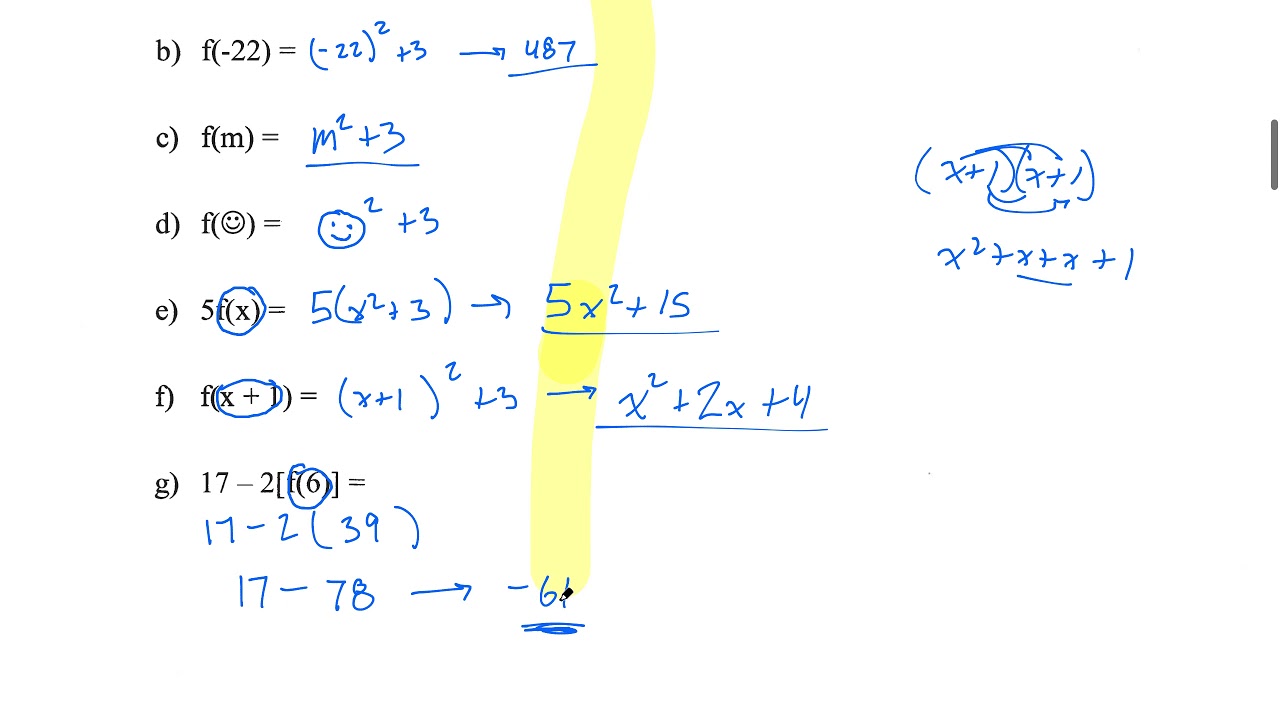 b) f(-22) = (-22)² +3 → 487
c) f(m) = m² +3
d) f(☺) = ☺² +3
e) 5f(x) = 5(x²+3) → 5x²+15
f) f(x + 1) = (x+1)² +3 → x²+2x+4
g) 17 – 2[f(6)] =
17-2(39)
17-78 → -61
(x+1)(x+1)
x²+x+x+1